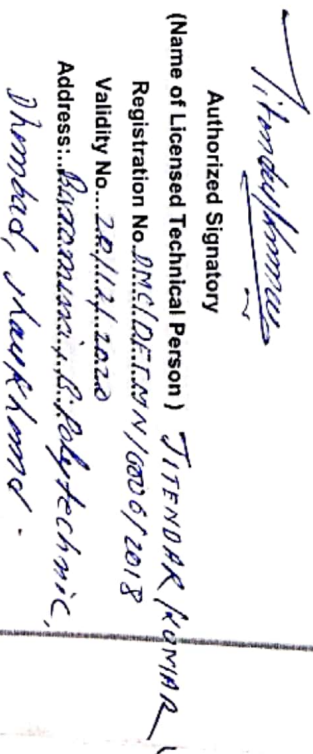 Jitendar Kumar
Authorized Signatory
(Name of Licensed Technical Person) JITENDAR KUMAR
Registration No. DMC/DET.MN/0006/2018
Validity No...20/12/2020
Address:... Polytechnic,
Dhanbad, Jharkhand.